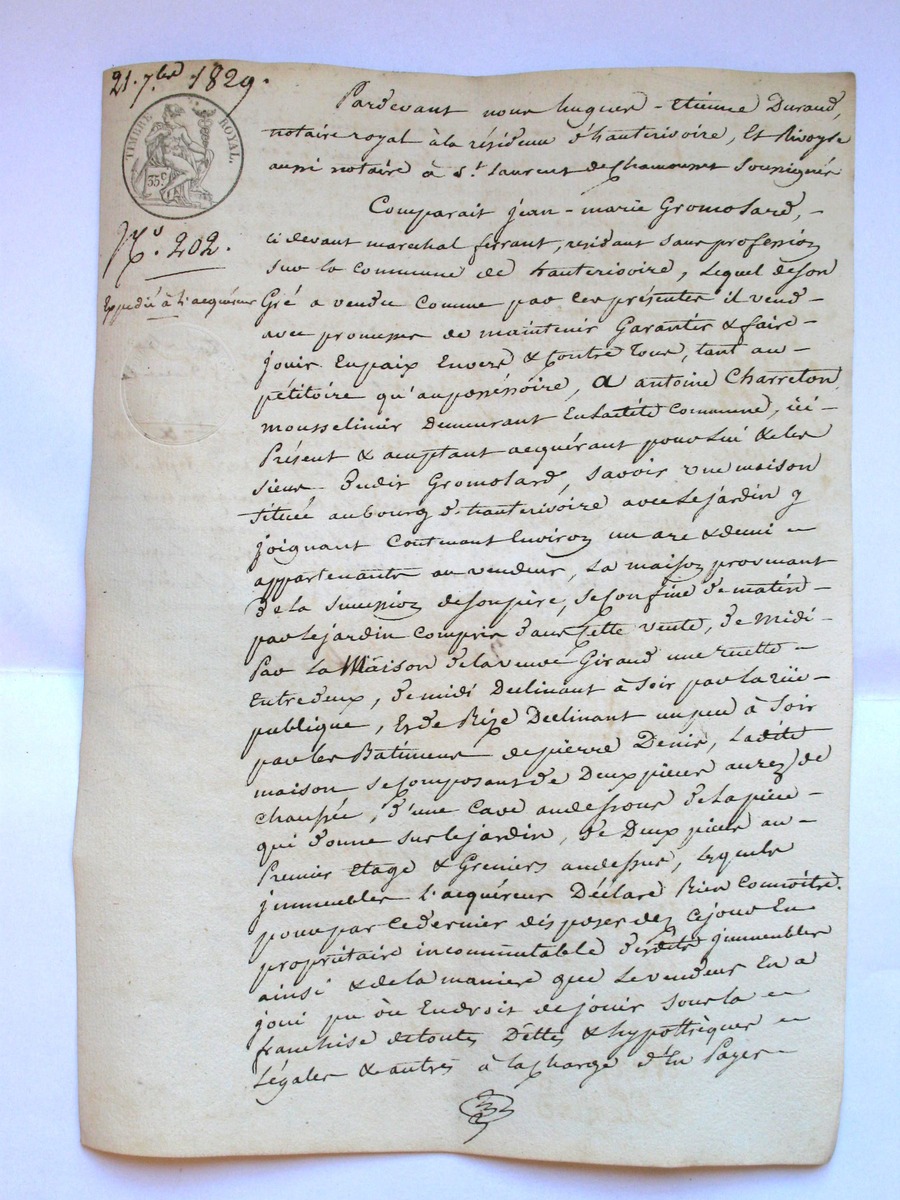 21. 7bre 1829.
TIMBRE ROYAL.
35 c
N.o 202.
Expédié à l'acquéreur
Pardevant nous hugues - etienne Durand,
notaire royal à la résidence d'hauterivoire, Et Rivoyre
aussi notaire à St. Laurent de Chamousset Soussignés
Comparait jean - marie Gromolard, -
ci devant marechal ferrant, résidant sans profession
sur la Commune de hauterivoire, Lequel de son
Gré a vendu Comme par ces présentes il vend -
avec promesses de maintenir Garantir & faire -
jouir En paix Envers & Contre tous, tant au -
pétitoire qu'au possessoire, a antoine Charreton,
mousselinier Demeurant En Ladité Commune, ici -
Présent & acceptant acquérant pour Lui & les
siens - dudit Gromolard, savoir une maison
située au bourg d'hauterivoire avec Le jardin y
joignant Contenant Environ un are & demi =
appartenants au vendeur, La maison provenant
de La Succession de son père, Se Confine de matin -
par Le jardin Compris dans Cette vente, de Midi -
Par La Maison de la veuve Giraud une ruette -
Entre deux, de midi Declinant à Soir par La rüe -
publique, Et de Bize Declinant un peu à Soir
par les Batimens de pierre Denis, Ladite
maison se Composant de Deux pieces au rez de
chaussée, d'une Cave au dessous de La piece -
qui donne sur Le jardin, de Deux pieces au -
Premier Etage & Greniers au dessus, Lesquels
jmmeubles L'acquéreur Déclare Bien Connoître.
pour par Ce dernier disposer dez Ce jour En
propriétaire incommutable desdits jmmeubles
ainsi & de la maniere que Le vendeur En a
joui pu ou En droit de jouir sous la =
franchise de toutes Dettes & hypothèques =
Légales & autres à la charge d'En Payer -